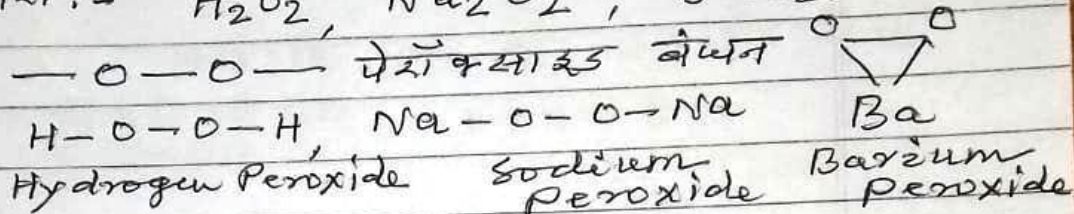 H2O2, Na2O2,
—O—O— पेरॉक्साइड बंधन O O
H-O-O-H, Na-O-O-Na Ba
Hydrogen Peroxide Sodium Peroxide Barium Peroxide